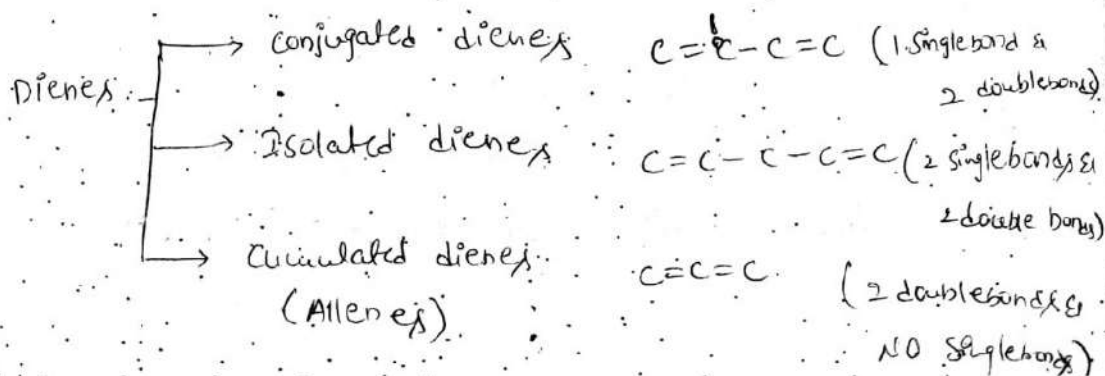 Dienes
→ conjugated dienes C=C-C=C (1 single bond &
2 doublebonds)
→ Isolated dienes C=C-C-C=C (2 singlebonds &
2 double bonds)
→ Cumulated dienes C=C=C (2 doublebonds &
(Allenes) NO Singlebonds)